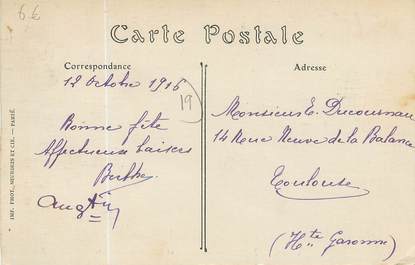 6 €
Carte Postale
Correspondance
Adresse
12 Octobre 1916
19
Bonne fête
Affectueux baisers
Berthe
Monsieur E. Ducournau
14 Rue Neuve de la Balance
Toulouse
(Hte Garonne)
IMP. PHOT. NEURDEIN ET CIE. — PARIS.